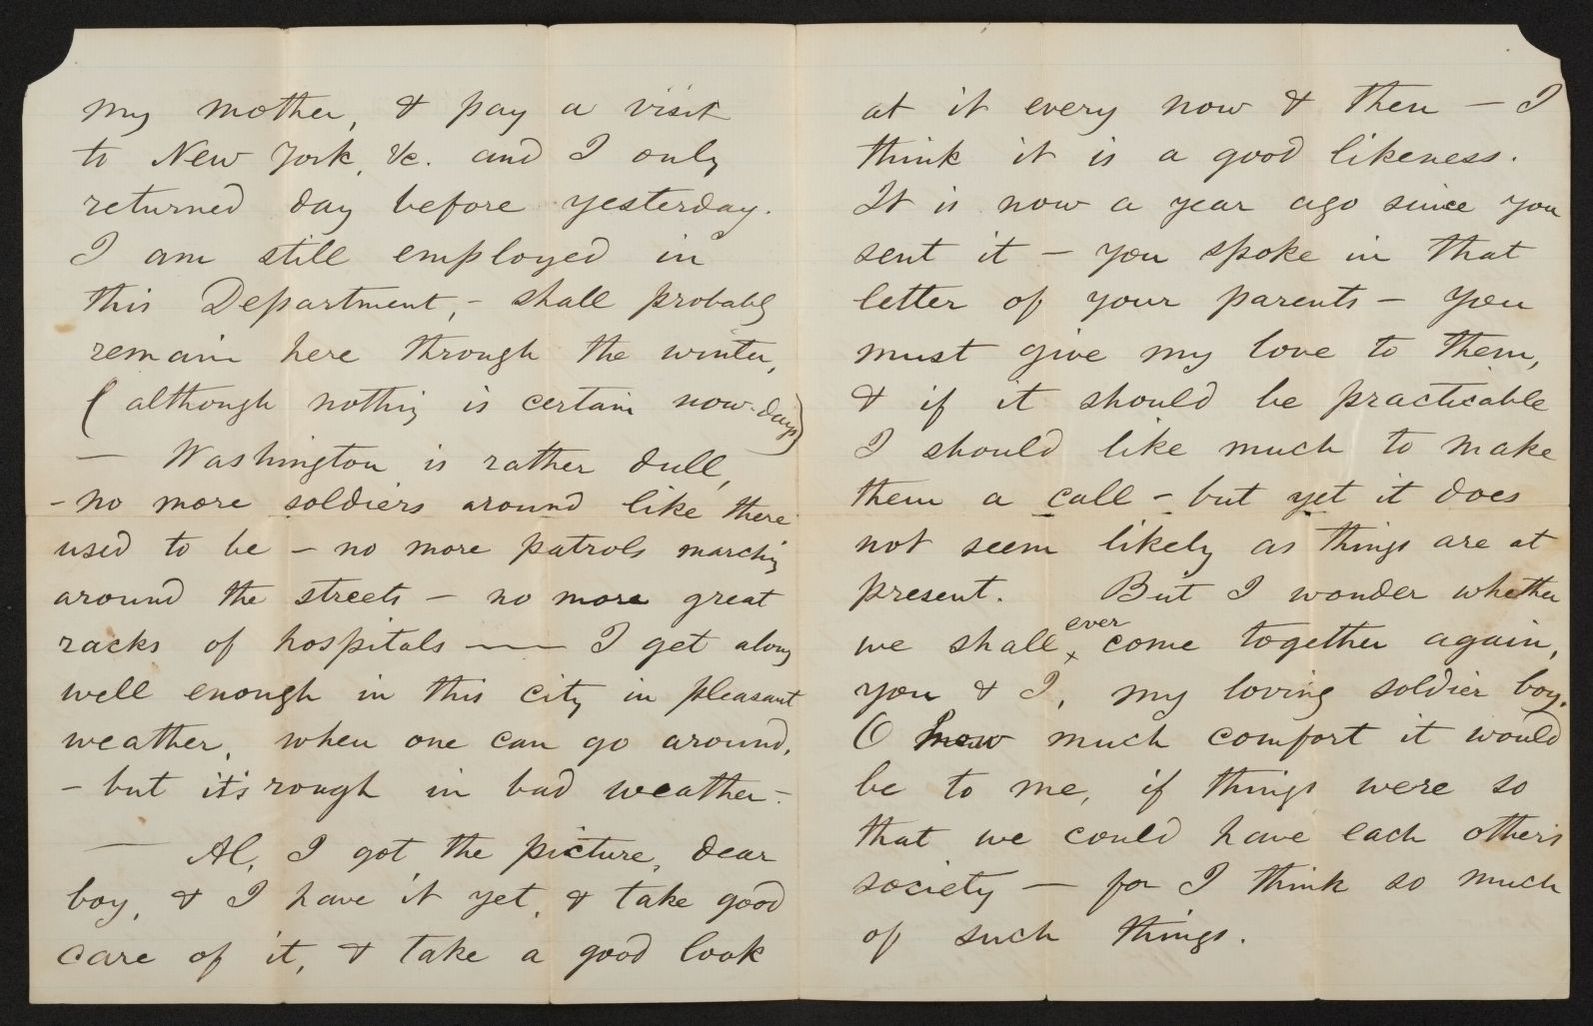 my mother, & pay a visit
to New York, &c. and I only
returned day before yesterday.
I am still employed in
this Department, – shall probably
remain here through the winter,
(although nothing is certain now-days)
— Washington is rather dull,
– no more soldiers around like there
used to be – no more patrols marching
around the streets – no more great
racks of hospitals —— I get along
well enough in this city in pleasant
weather, when one can go around,
– but it's rough in bad weather –
— Al, I got the picture, dear
boy, & I have it yet, & take good
care of it, & take a good look
at it every now & then – I
think it is a good likeness.
It is now a year ago since you
sent it – you spoke in that
letter of your parents – You
must give my love to them,
& if it should be practicable
I should like much to make
them a call – but yet it does
not seem likely as things are at
present. But I wonder whether
we shall ever come together again,
you & I, my loving soldier boy.
O how much comfort it would
be to me, if things were so
that we could have each other's
society — for I think so much
of such things.